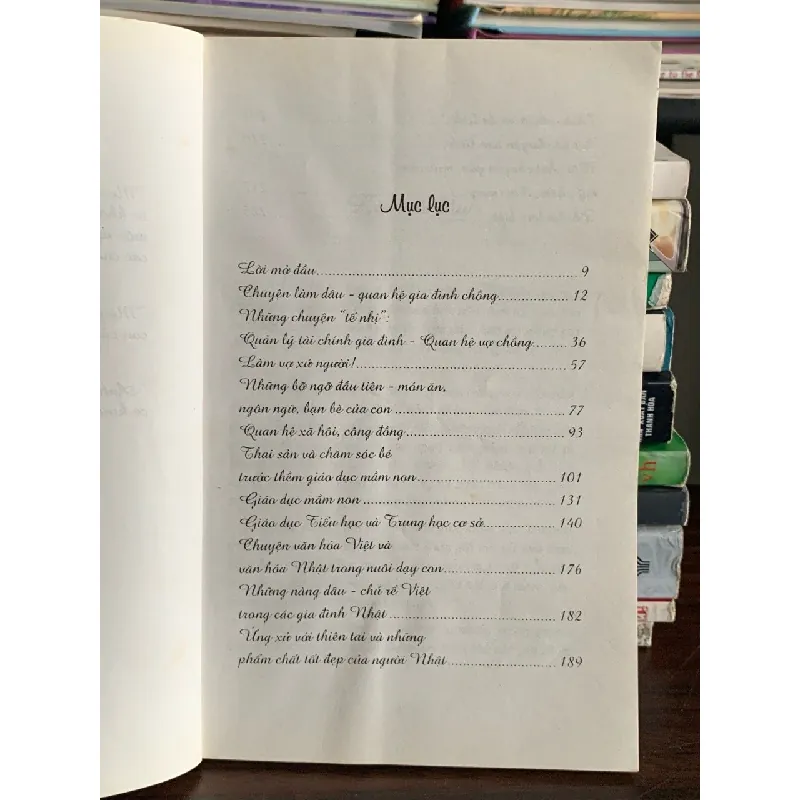 Mục lục
Lời mở đầu 9
Chuyện làm dâu - quan hệ gia đình chồng 12
Những chuyện "tế nhị":
Quản lý tài chính gia đình - Quan hệ vợ chồng 36
Làm vợ xứ người! 57
Những bỡ ngỡ đầu tiên - món ăn,
ngôn ngữ, bạn bè của con 77
Quan hệ xã hội, cộng đồng 93
Thai sản và chăm sóc bé
trước thềm giáo dục mầm non 101
Giáo dục mầm non 131
Giáo dục Tiểu học và Trung học cơ sở 140
Chuyện văn hóa Việt và
văn hóa Nhật trong nuôi dạy con 176
Những nàng dâu - chú rể Việt
trong các gia đình Nhật 182
Ứng xử với thiên tai và những
phẩm chất tốt đẹp của người Nhật 189
XUẤT BẢN
THANH HÓA